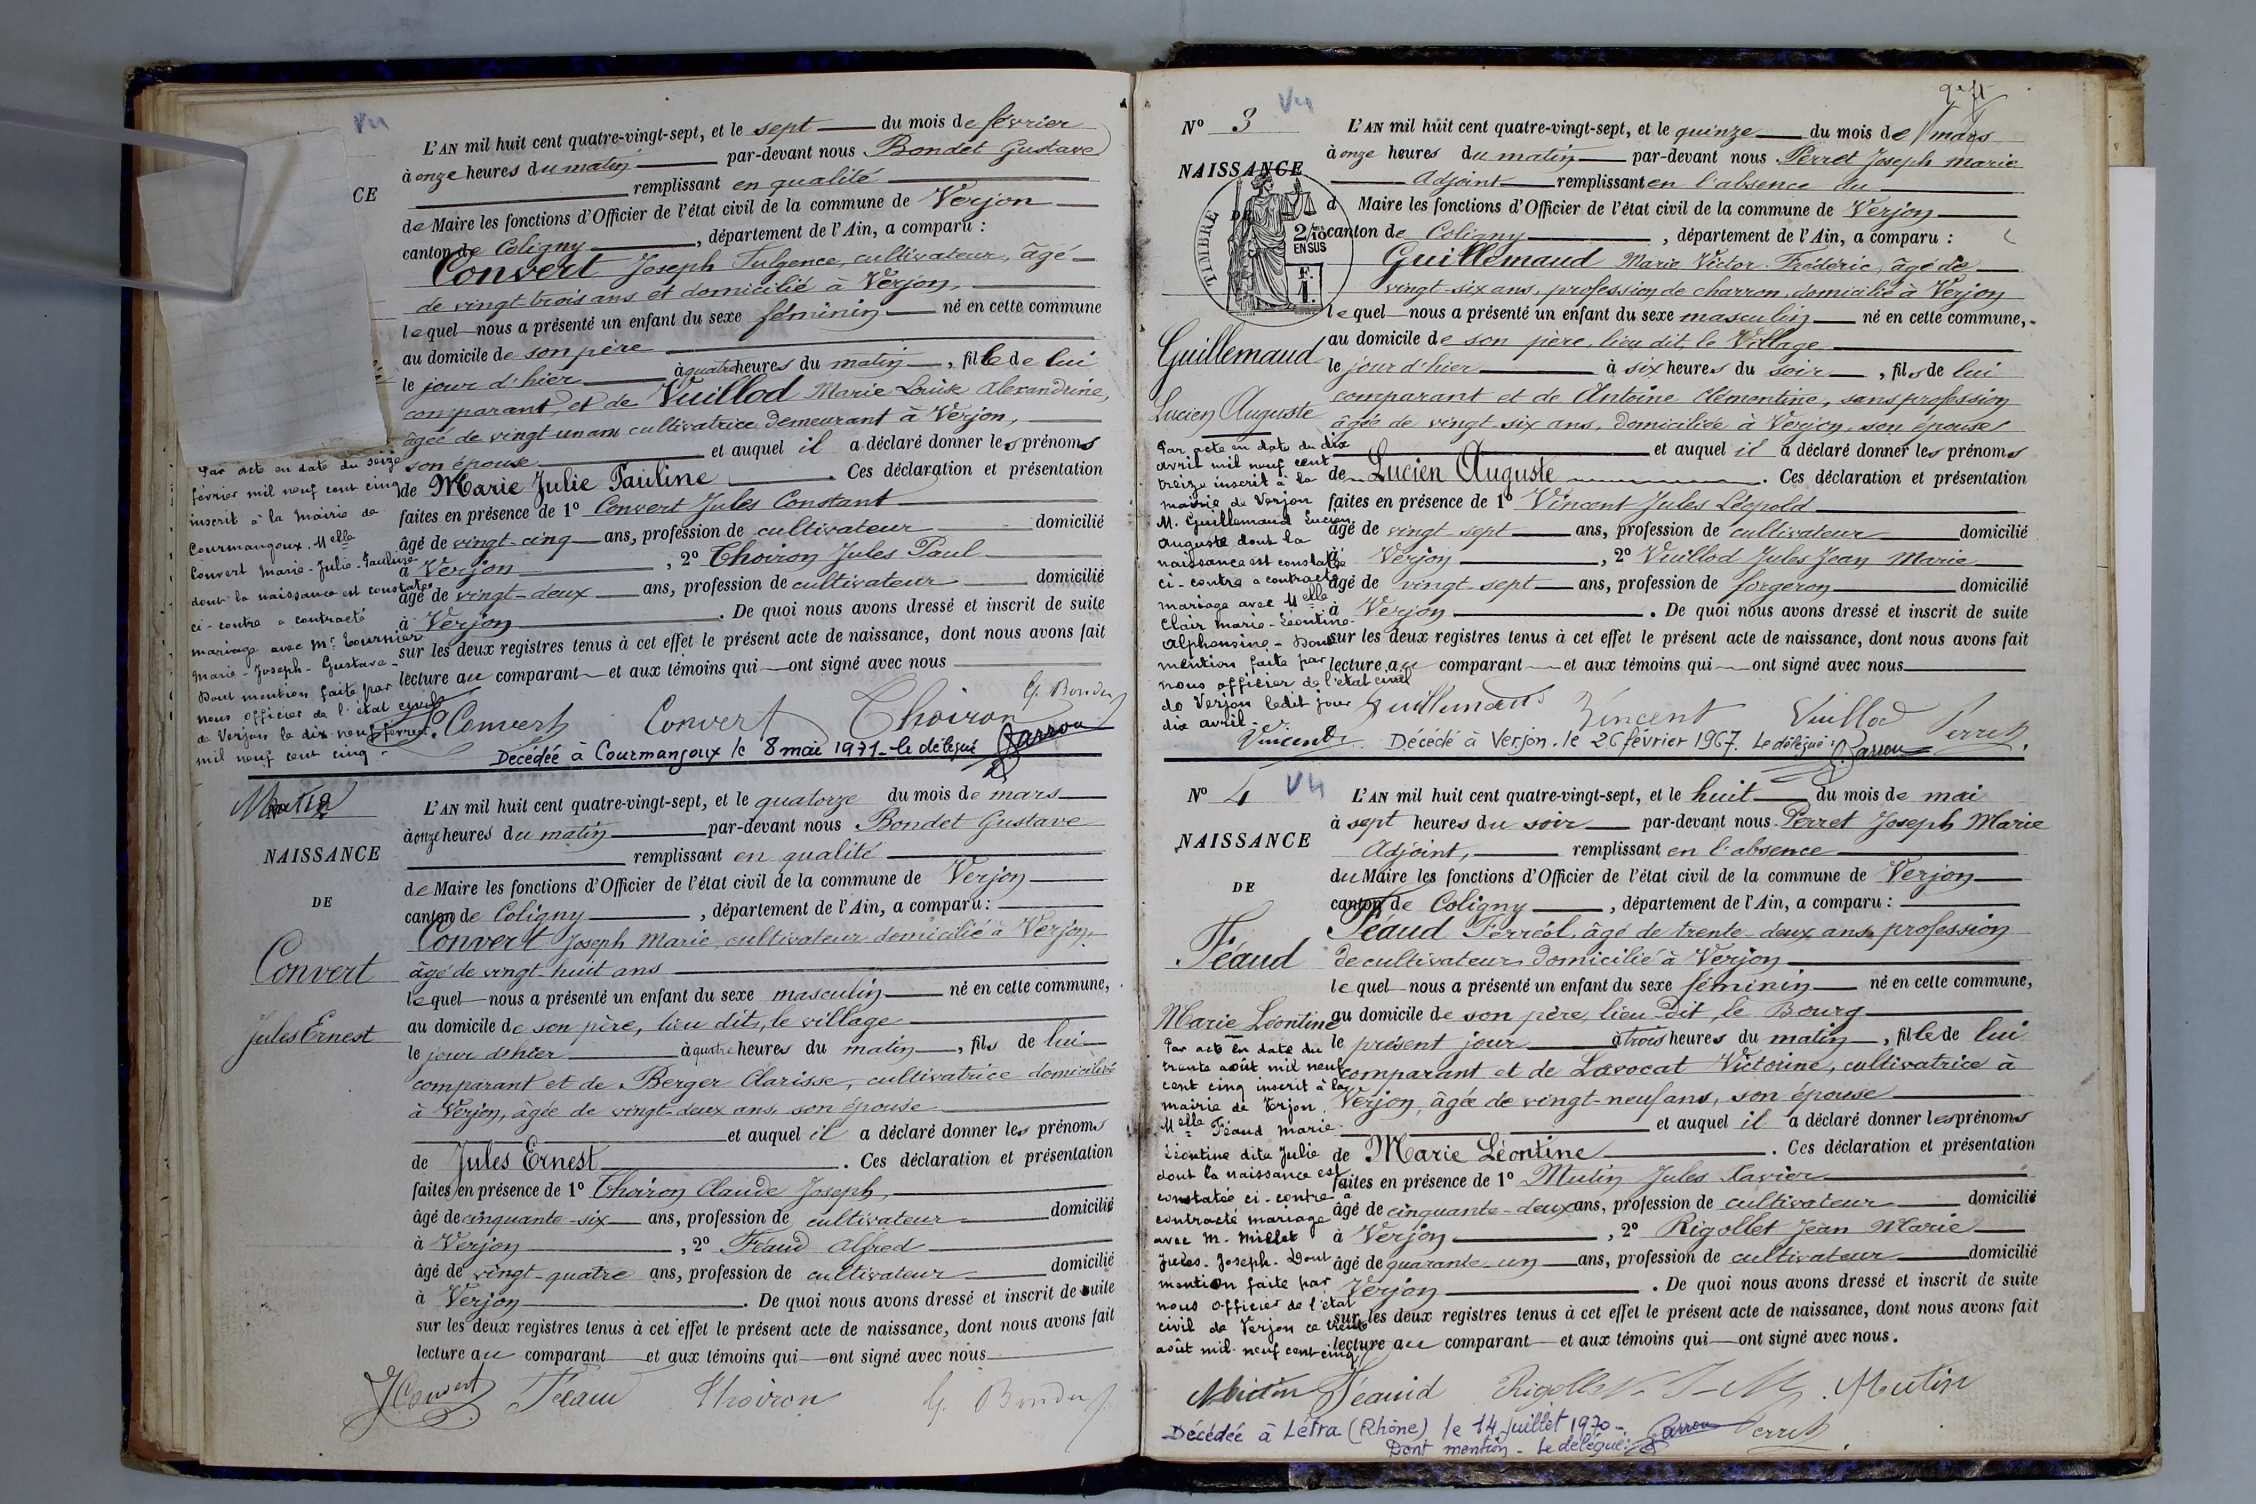 Vu
CE
L'AN mil huit cent quatre-vingt-sept, et le sept du mois de février
à onze heures du matin par-devant nous Bondet Gustave
remplissant en qualité
de Maire les fonctions d'Officier de l'état civil de la commune de Verjon
canton de Coligny, département de l'Ain, a comparu :
Convert Joseph Fulgence, cultivateur, âgé
de vingt-trois ans et domicilié à Verjon,
lequel nous a présenté un enfant du sexe féminin né en cette commune
au domicile de son père
le jour d'hier à quatre heures du matin, fille de lui
comparant, et de Vuillod Marie Louise Alexandrine,
âgée de vingt-un ans cultivatrice demeurant à Verjon,
son épouse et auquel il a déclaré donner les prénoms
de Marie Julie Pauline. Ces déclaration et présentation
faites en présence de 1º Convert Jules Constant
âgé de vingt-cinq ans, profession de cultivateur domicilié
à Verjon, 2º Choiron Jules Paul
âgé de vingt-deux ans, profession de cultivateur domicilié
à Verjon. De quoi nous avons dressé et inscrit de suite
sur les deux registres tenus à cet effet le présent acte de naissance, dont nous avons fait
lecture au comparant et aux témoins qui ont signé avec nous
Par acte en date du seize
février mil neuf cent cinq
inscrit à la Mairie de
Courmangoux, Melle
Convert Marie-Julie-Pauline
dont la naissance est constatée
ci-contre a contracté
mariage avec Mr Tournier
Marie-Joseph-Gustave-
Dont mention faite par
nous officier de l'état civil
de Verjon le dix-neuf février
mil neuf cent cinq.
Convert Convert Choiron G. Bondet
Décédée à Courmangoux le 8 mai 1971 - le délégué Carron
NAISSANCE
DE
Convert
Jules Ernest
L'AN mil huit cent quatre-vingt-sept, et le quatorze du mois de mars
à onze heures du matin par-devant nous Bondet Gustave
remplissant en qualité
de Maire les fonctions d'Officier de l'état civil de la commune de Verjon
canton de Coligny, département de l'Ain, a comparu :
Convert Joseph Marie, cultivateur domicilié à Verjon,
âgé de vingt-huit ans
lequel nous a présenté un enfant du sexe masculin né en cette commune,
au domicile de son père, lieu dit, le village
le jour d'hier à quatre heures du matin, fils de lui
comparant et de Berger Clarisse, cultivatrice domiciliée
à Verjon, âgée de vingt-deux ans, son épouse
et auquel il a déclaré donner les prénoms
de Jules Ernest. Ces déclaration et présentation
faites en présence de 1º Choiron Claude Joseph,
âgé de cinquante-six ans, profession de cultivateur domicilié
à Verjon, 2º Féaud Alfred
âgé de vingt-quatre ans, profession de cultivateur domicilié
à Verjon. De quoi nous avons dressé et inscrit de suite
sur les deux registres tenus à cet effet le présent acte de naissance, dont nous avons fait
lecture au comparant et aux témoins qui ont signé avec nous
J Convert Féaud Choiron G. Bondet
Nº 3 Vu
NAISSANCE
DE
TIMBRE
2/10
EN SUS
F.
1.
Guillemaud
Lucien Auguste
L'AN mil huit cent quatre-vingt-sept, et le quinze du mois de mars
à onze heures du matin par-devant nous Perret Joseph Marie
Adjoint remplissant en l'absence du
d Maire les fonctions d'Officier de l'état civil de la commune de Verjon
canton de Coligny, département de l'Ain, a comparu :
Guillemaud Marie Victor Frédéric, âgé de
vingt-six ans, profession de charron, domicilié à Verjon
lequel nous a présenté un enfant du sexe masculin né en cette commune,
au domicile de son père, lieu dit, le Village
le jour d'hier à six heures du soir, fils de lui
comparant et de Antoine Clémentine, sans profession
âgée de vingt-six ans, domiciliée à Verjon, son épouse
et auquel il a déclaré donner les prénoms
de Lucien Auguste. Ces déclaration et présentation
faites en présence de 1º Vincent Jules Léopold
âgé de vingt-sept ans, profession de cultivateur domicilié
à Verjon, 2º Vuillod Jules Jean Marie
âgé de vingt-sept ans, profession de forgeron domicilié
à Verjon. De quoi nous avons dressé et inscrit de suite
sur les deux registres tenus à cet effet le présent acte de naissance, dont nous avons fait
lecture au comparant et aux témoins qui ont signé avec nous
Par acte en date du dix
avril mil neuf cent
treize inscrit à la
mairie de Verjon
M. Guillemaud Lucien
Auguste dont la
naissance est constatée
ci-contre a contracté
mariage avec Melle
Clair Marie-Léontine-
Alphonsine - Dont
mention faite par
nous officier de l'état civil
de Verjon ledit jour
dix avril.
Vincent
Guillemaud Vincent Vuillod Perret
Décédé à Verjon. le 26 février 1967. Le délégué : Carron
Nº 4 Vu
NAISSANCE
DE
Féaud
Marie Léontine
L'AN mil huit cent quatre-vingt-sept, et le huit du mois de mai
à sept heures du soir par-devant nous Perret Joseph Marie
Adjoint, remplissant en l'absence
du Maire les fonctions d'Officier de l'état civil de la commune de Verjon
canton de Coligny, département de l'Ain, a comparu :
Féaud Ferréol, âgé de trente-deux ans, profession
de cultivateur domicilié à Verjon
lequel nous a présenté un enfant du sexe féminin né en cette commune,
au domicile de son père, lieu dit, le Bourg
le présent jour à trois heures du matin, fille de lui
comparant et de Lavocat Victorine, cultivatrice à
Verjon, âgée de vingt-neuf ans, son épouse
et auquel il a déclaré donner les prénoms
de Marie Léontine. Ces déclaration et présentation
faites en présence de 1º Mutin Jules Xavier
âgé de cinquante-deux ans, profession de cultivateur domicilié
à Verjon, 2º Rigollet Jean Marie
âgé de quarante-un ans, profession de cultivateur domicilié
Verjon. De quoi nous avons dressé et inscrit de suite
sur les deux registres tenus à cet effet le présent acte de naissance, dont nous avons fait
lecture au comparant et aux témoins qui ont signé avec nous.
Par acte en date du
trente août mil neuf
cent cinq inscrit à la
mairie de Verjon,
Melle Féaud Marie-
Léontine dite Julie
dont la naissance est
constatée ci-contre a
contracté mariage
avec M. Millet
Jules-Joseph. Dont
mention faite par
nous Officier de l'état
civil de Verjon ce trente
août mil neuf cent cinq
Mutin Féaud Rigollet Mutin
Perret
Décédée à Létra (Rhône) le 14 juillet 1970 - Carron
Dont mention - Le délégué :